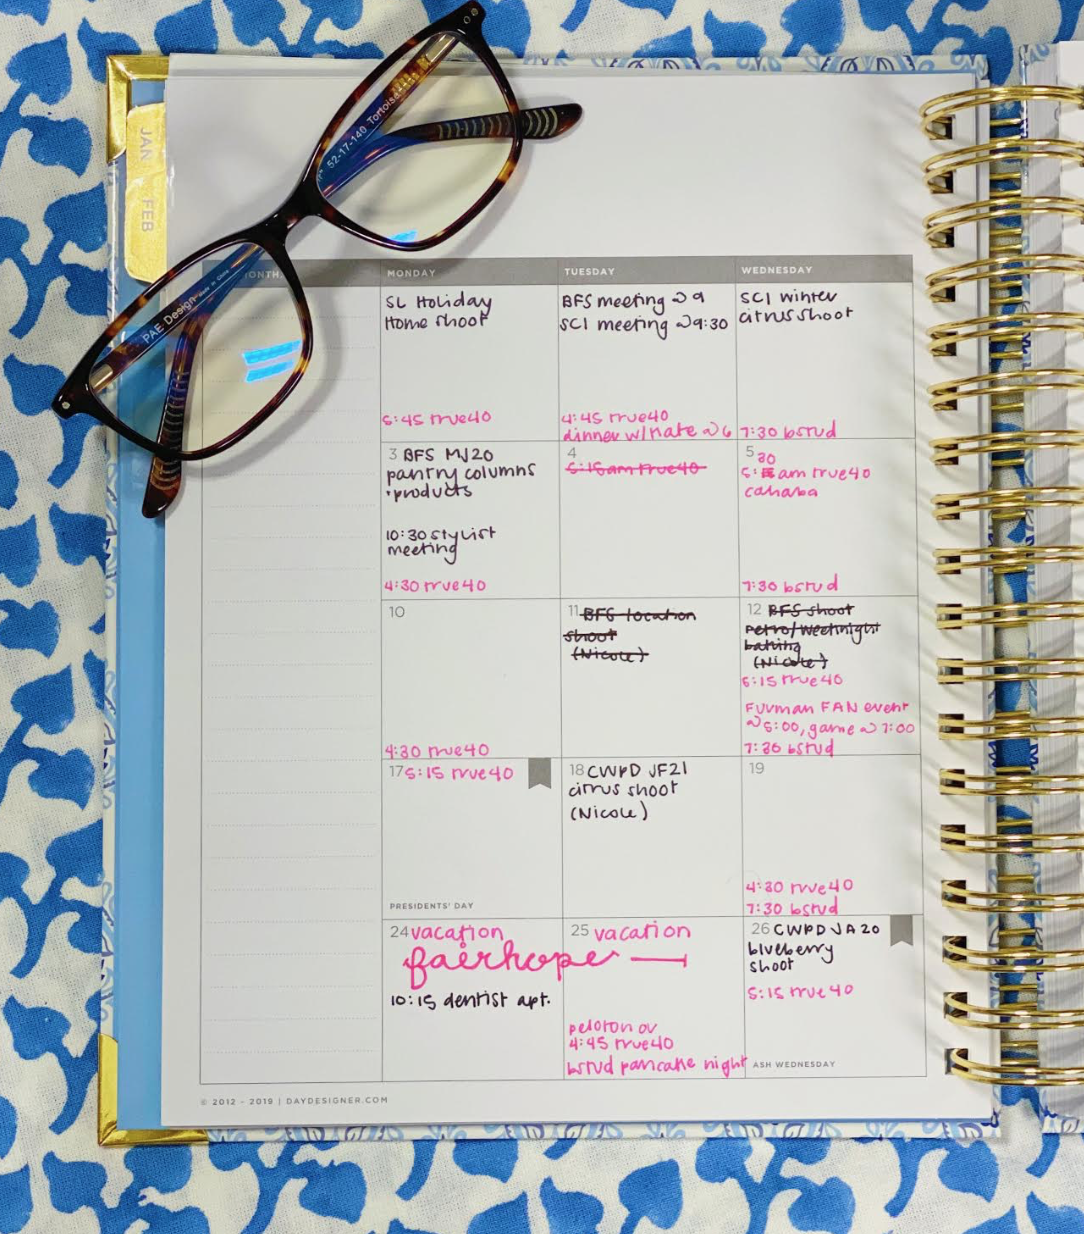 52-17-140 Tortoise
PAE Design Made in China
JAN
FEB
MONTH
MONDAY
TUESDAY
WEDNESDAY
SL Holiday
Home shoot
5:45 true40
BFS meeting @ 9
SCI meeting @ 9:30
4:45 true40
dinner w/nate @ 6
SCI winter
citrus shoot
7:30 bstud
3 BFS MJ20
pantry columns
+products
10:30 stylist
meeting
4:30 true40
4
5:15am true40
5
30
5: am true40
cahaba
7:30 bstud
10
4:30 true40
11 BFS location
shoot
(Nicole)
12 BFS shoot
retro/weeknight
baking
(Nicole)
5:15 true40
Furman FAN event
@ 5:00, game @ 7:00
7:30 bstud
17 5:15 true40
PRESIDENTS' DAY
18 CWPD JF21
citrus shoot
(Nicole)
19
4:30 true40
7:30 bstud
24 vacation
fairhope
10:15 dentist apt.
25 vacation
peloton or
4:45 true40
bstud pancake night
26 CWPD JA20
blueberry
shoot
5:15 true40
ASH WEDNESDAY
© 2012 - 2019 | DAYDESIGNER.COM